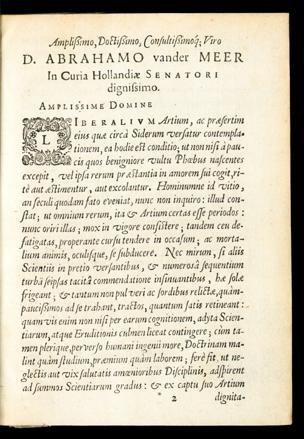 Amplissimo, Doctissimo, Consultissimoq; Viro
D. ABRAHAMO vander MEER
In Curia Hollandiæ SENATORI
dignissimo.
AMPLISSIME DOMINE
LIBERALIVM Artium, ac præsertim
eius quæ circà Siderum versatur contempla-
tionem, ea hodie est conditio, ut non nisi à pau-
cis quos benigniore vultu Phœbus nascentes
excepit, vel ipsa rerum præstantia in amorem sui cogit, ri-
tè aut æstimentur, aut excolantur. Hominumne id vitio,
an seculi quodam fato eveniat, nunc non inquiro: illud con-
stat; ut omnium rerum, ita & Artium certas esse periodos:
nunc oriri illas; mox in vigore consistere; tandem ceu de-
fatigatas, properante cursu tendere in occasum; ac morta-
lium animis, oculisque, se subducere. Nec mirum, si aliis
Scientiis in pretio versantibus, & numerosâ sequentium
turbâ seipsas tacitâ commendatione insinuantibus, hæ solæ
frigeant; & tantum non pulveri ac sordibus relictæ, quàm-
paucissimos ad se trahant, tractos, quantum satis retineant:
quamvis enim non nisi per earum cognitionem, adyta Scien-
tiarum, atque Eruditionis culmen liceat contingere; cùm ta-
men plerique, perverso humani ingenii more, Doctrinam ma-
lint quàm studium, præmium quàm laborem; ferè fit, ut ne-
glectis aut vix salutatis amœnioribus Disciplinis, adspirent
ad summos Scientiarum gradus: & ex captu suo Artium
2 dignita-